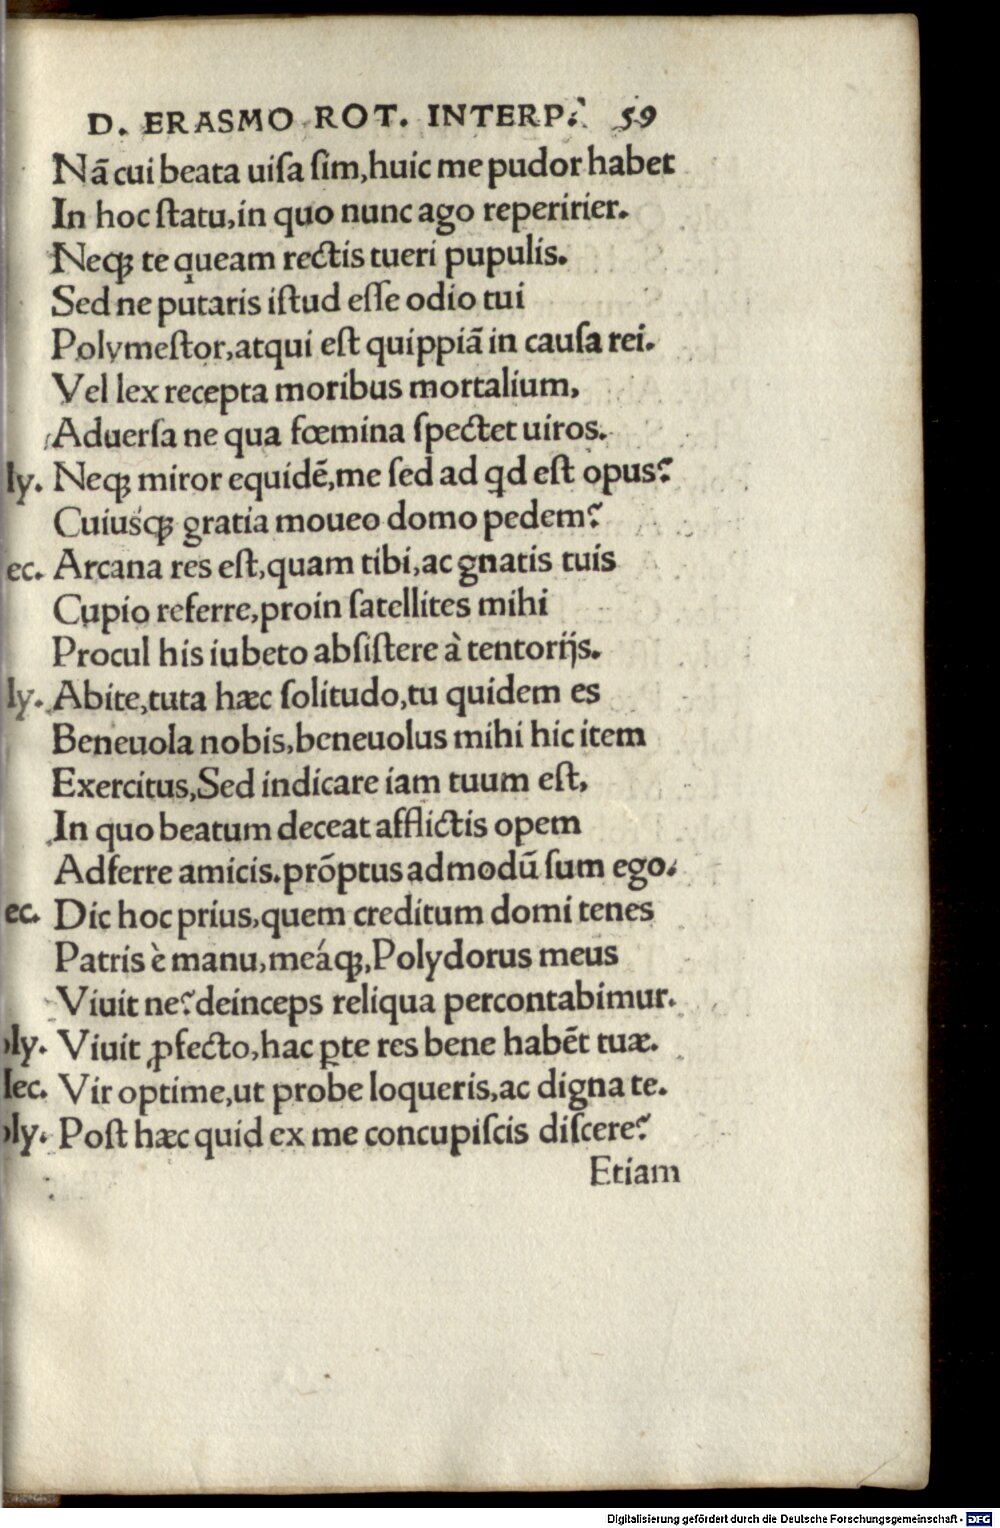 D. ERASMO ROT. INTERP. 59
Nã cui beata uiſa ſim,huic me pudor habet
In hoc ſtatu,in quo nunc ago reperirier.
Neqꝫ te queam rectis tueri pupulis.
Sed ne putaris iſtud eſſe odio tui
Polymeſtor,atqui eſt quippiã in cauſa rei.
Vel lex recepta moribus mortalium,
Aduerſa ne qua fœmina ſpectet uiros.
ly. Neqꝫ miror equidẽ,me ſed ad qd eſt opus?
Cuiusqꝫ gratia moueo domo pedem?
ec. Arcana res eſt,quam tibi,ac gnatis tuis
Cupio referre,proin ſatellites mihi
Procul his iubeto abſiſtere à tentorijs.
ly. Abite,tuta hæc ſolitudo,tu quidem es
Beneuola nobis,beneuolus mihi hic item
Exercitus,Sed indicare iam tuum eſt,
In quo beatum deceat afflictis opem
Adferre amicis.prõptus admodũ ſum ego.
ec. Dic hoc prius,quem creditum domi tenes
Patris è manu,meáqꝫ,Polydorus meus
Viuit ne?deinceps reliqua percontabimur.
oly. Viuit ꝓfecto,hac ꝑte res bene habẽt tuæ.
Hec. Vir optime,ut probe loqueris,ac digna te.
oly. Poſt hæc quid ex me concupiſcis diſcere?
Etiam
Digitalisierung gefördert durch die Deutsche Forschungsgemeinschaft - DFG